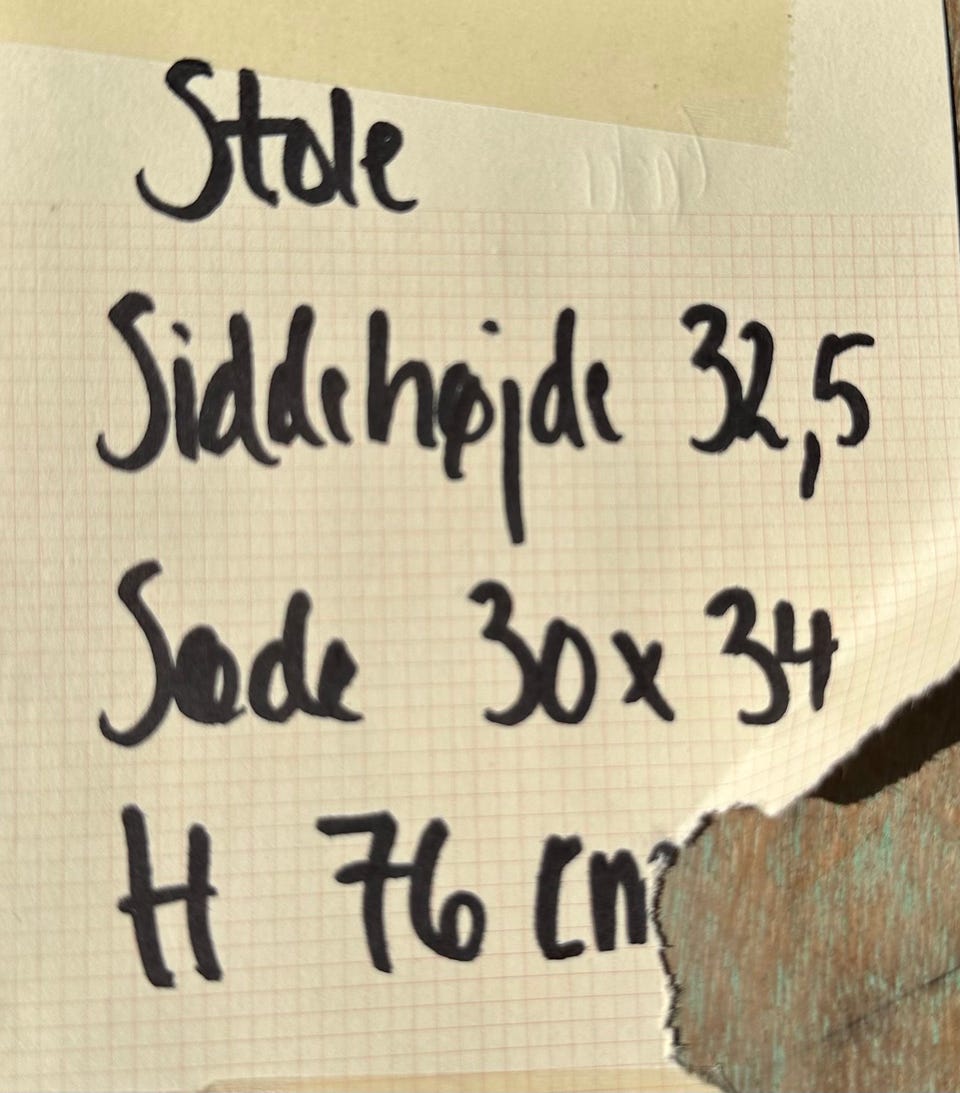 Stole
Siddehøjde 32,5
Sæde 30x34
H 76 cm